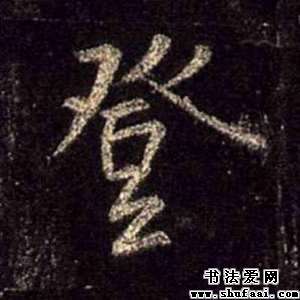 登
书法爱网
www.shufaai.com